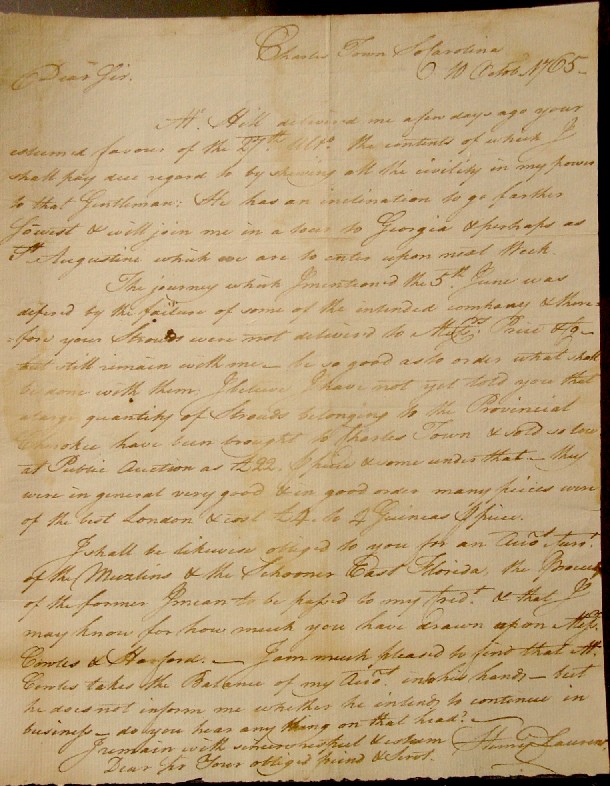 Charles Town So Carolina
10 Octob. 1765-
Dear Sir.
Mr. Hill deliver'd me a few days ago your
esteemed favour of the 27th. Ulto. the contents of which I
shall pay due regard to by shewing all the civility in my power
to that Gentleman: He has an inclination to go farther
Sowest & will join me in a tour to Georgia & perhaps as
St. Augustine which we are to enter upon next Week.
The journey which I mention'd the 5th. June was
defer'd by the failure of some of the intended company & there-
=fore your Strouds were not deliver'd to Messrs. Price & Co-
but still remain with me- be so good as to order what shall
be done with them. I believe I have not yet told you that
a large quantity of Strouds belonging to the Provincial
Cherokee have been brought to Charles Town & sold so low
at Public Auction as £22. ℔ piece & some under that- they
were in general very good & in good order many pieces were
of the best London & cost £4. to 4 Guineas ℔ piece.
I shall be likewise obliged to you for an Acct. Curt.
of the Muzlins & the Schooner East Florida, the Proceeds
of the former I mean to be passed to my Credt. & that I
may know for how much you have drawn upon Messrs.
Cowles & Harford.- I am much pleased to find that Mr.
Cowles takes the Balance of my Acct. into his hands- but
he does not inform me whether he intends to continue in
business- do you hear any thing on that head?-
I remain with sincere respect & esteem
Dear Sir Your obliged friend & Servt.
Henry Laurens